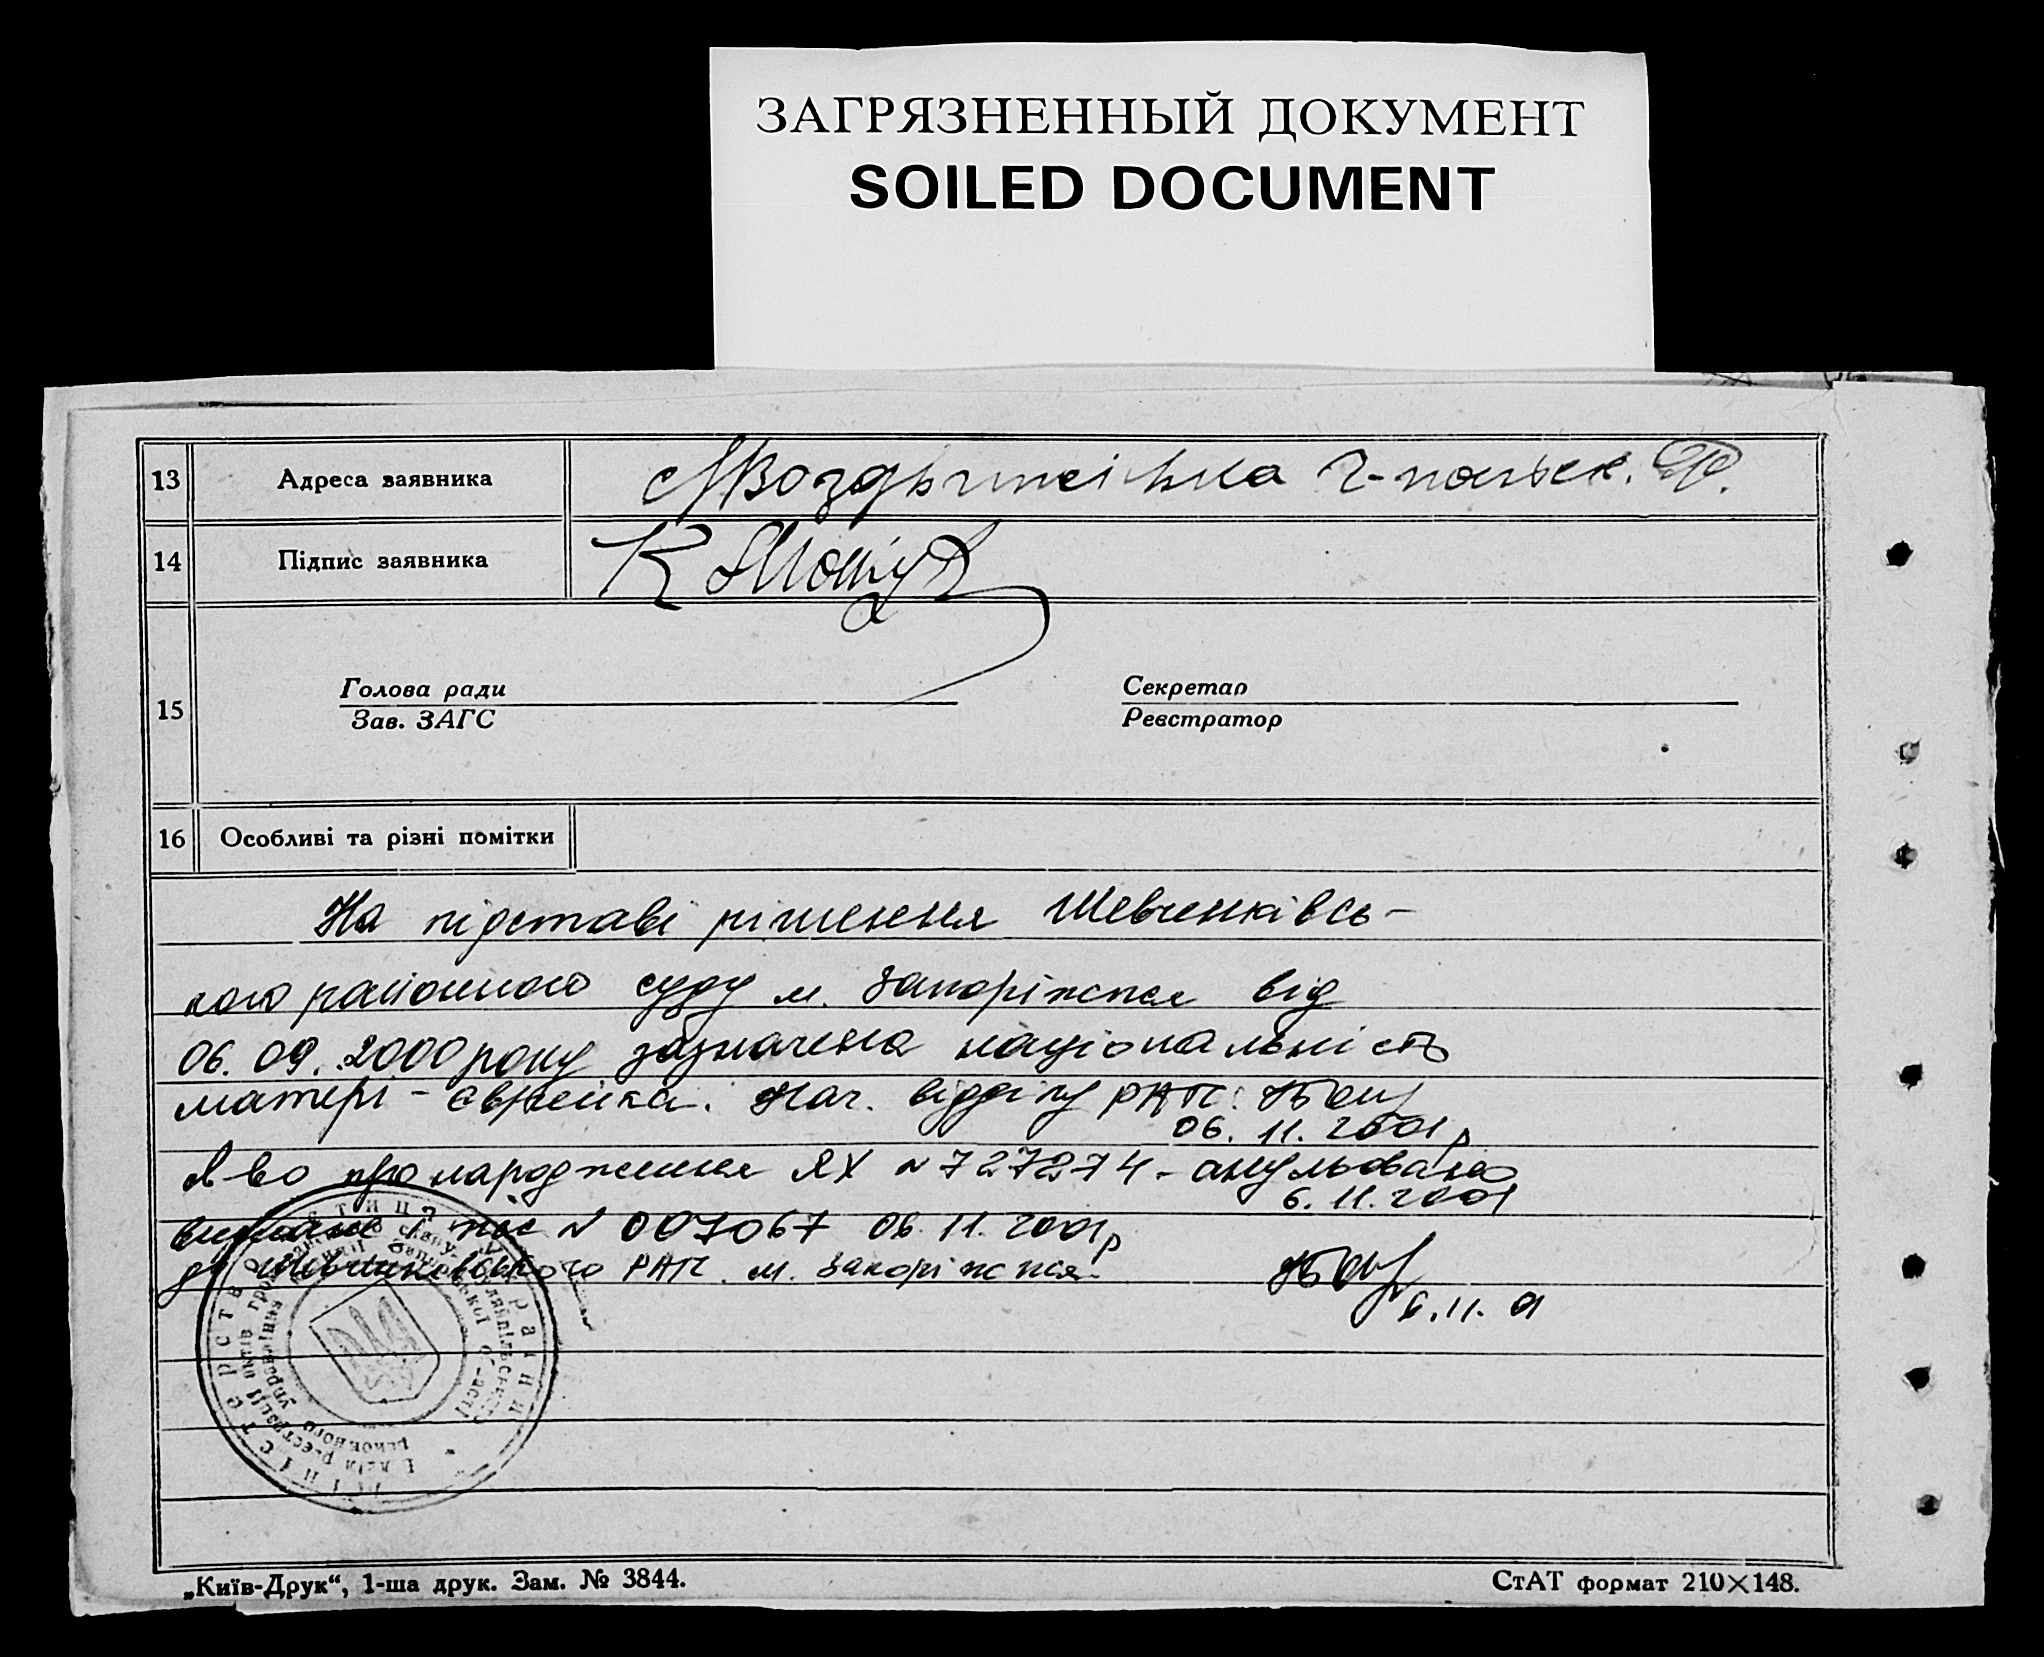 ЗАГРЯЗНЕННЫЙ ДОКУМЕНТ
SOILED DOCUMENT
13 Адреса заявника
14 Підпис заявника
15 Голова ради Секретар
Зав. ЗАГС Реєстратор
16 Особливі та різні помітки
На підставі рішення Шевченківсь-
кого районного суду м. Запоріжжя від
06.09.2000 року зазначена національність
матері - єврейка. Нач. відділу РАЦС
06.11.2001р
св-во про народження ЯХ №727274 - анульовано
6.11.2001
№ 007067 06.11.2001р
Шевченківського РАЦС м. Запоріжжя
6.11.01
Міністерство юстиції України
„Київ-Друк“, 1-ша друк. Зам. № 3844. СтАТ формат 210×148.